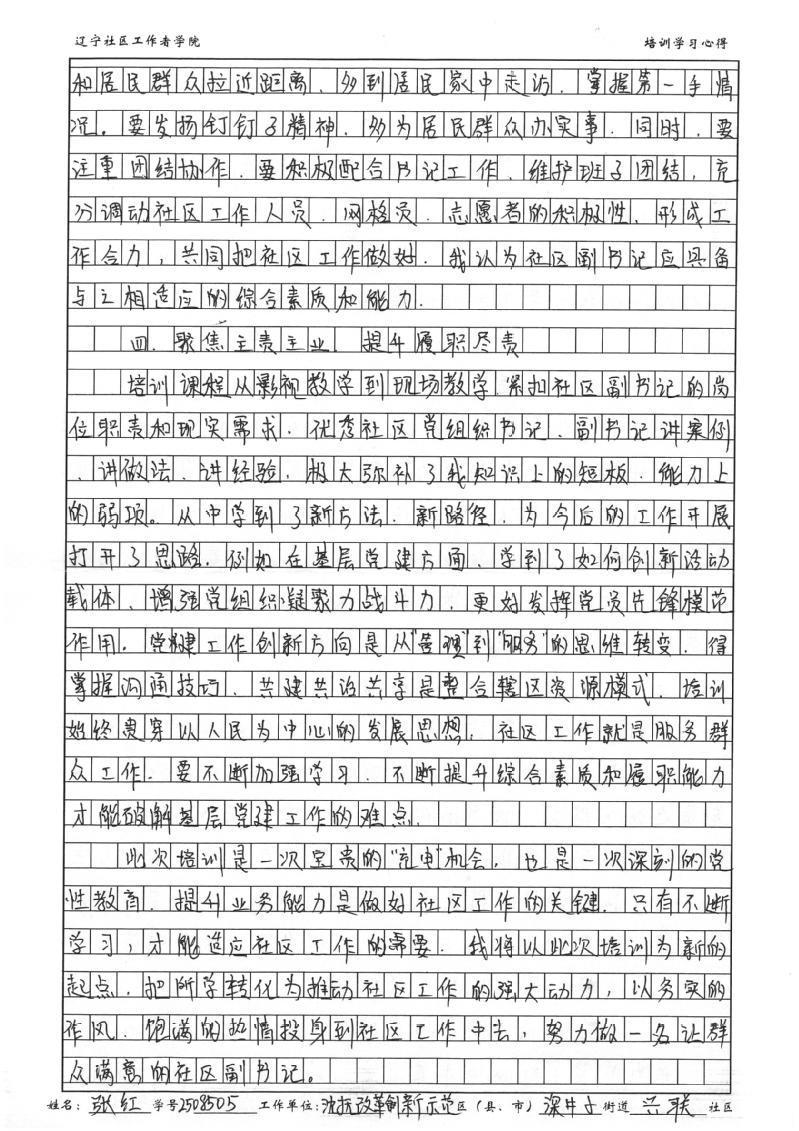 辽宁社区工作者学院 培训学习心得
和居民群众拉近距离、多到居民家中走访、掌握第一手情
况。要发扬钉钉子精神、多为居民群众办实事、同时、要
注重团结协作、要积极配合书记工作、维护班子团结，充
分调动社区工作人员、网格员、志愿者的积极性、形成工
作合力，共同把社区工作做好。我认为社区副书记应具备
与之相适应的综合素质和能力.
四、聚焦主责主业、提升履职尽责
培训课程从影视教学到现场教学.紧扣社区副书记的岗
位职责和现实需求.优秀社区党组织书记、副书记讲案例
、讲做法、讲经验、极大弥补了我知识上的短板、能力上
的弱项。从中学到了新方法、新路径、为今后的工作开展
打开了思路.例如在基层党建方面、学到了如何创新活动
载体、增强党组织凝聚力战斗力、更好发挥党员先锋模范
作用。党建工作创新方向是从"管理"到"服务"的思维转变、得
掌握沟通技巧、共建共治共享是整合辖区资源模式.培训
始终贯穿以人民为中心的发展思想，社区工作就是服务群
众工作.要不断加强学习、不断提升综合素质和履职能力
才能破解基层党建工作的难点.
此次培训是一次宝贵的"充电"机会，也是一次深刻的党
性教育.提升业务能力是做好社区工作的关键.只有不断
学习，才能适应社区工作的需要.我将以此次培训为新的
起点.把所学转化为推动社区工作的强大动力，以务实的
作风.饱满的热情投身到社区工作中去，努力做一名让群
众满意的社区副书记。
姓名：张红 学号2508505 工作单位：沈抚改革创新示范区（县、市）深井子街道 兴联 社区